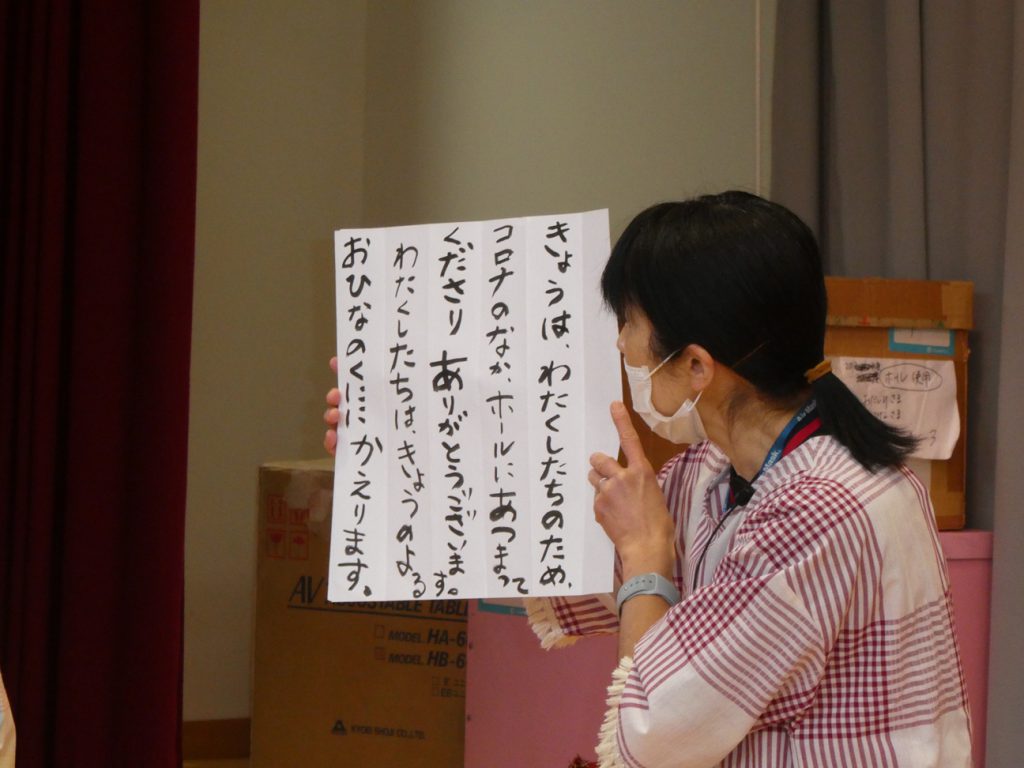 きょうは、わたくしたちのため、
コロナのなか、ホールにあつまって
くださり ありがとうございます。
わたくしたちは、きょうのよる
おひなのくに かえります。
AV ADJUSTABLE TABLE
MODEL HA-6
MODEL HB-6
KYOEI SHOJI CO.,LTD.
ホール使用